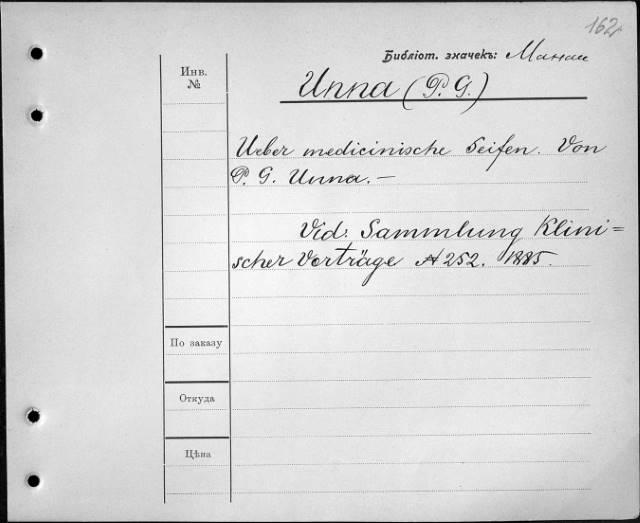 162
Библіот. значекъ: Манаи
Инв.
№
Unna (P. G.)
Ueber medicinische Seifen. Von
P. G. Unna. —
Vid: Sammlung Klini=
scher Vorträge № 252. 1885.
По заказу
Откуда
Цѣна